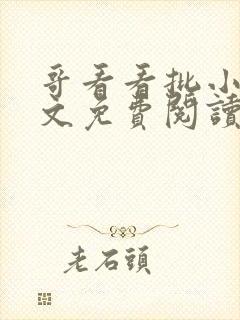 哥看看批小
文免費閱讀
老石頭